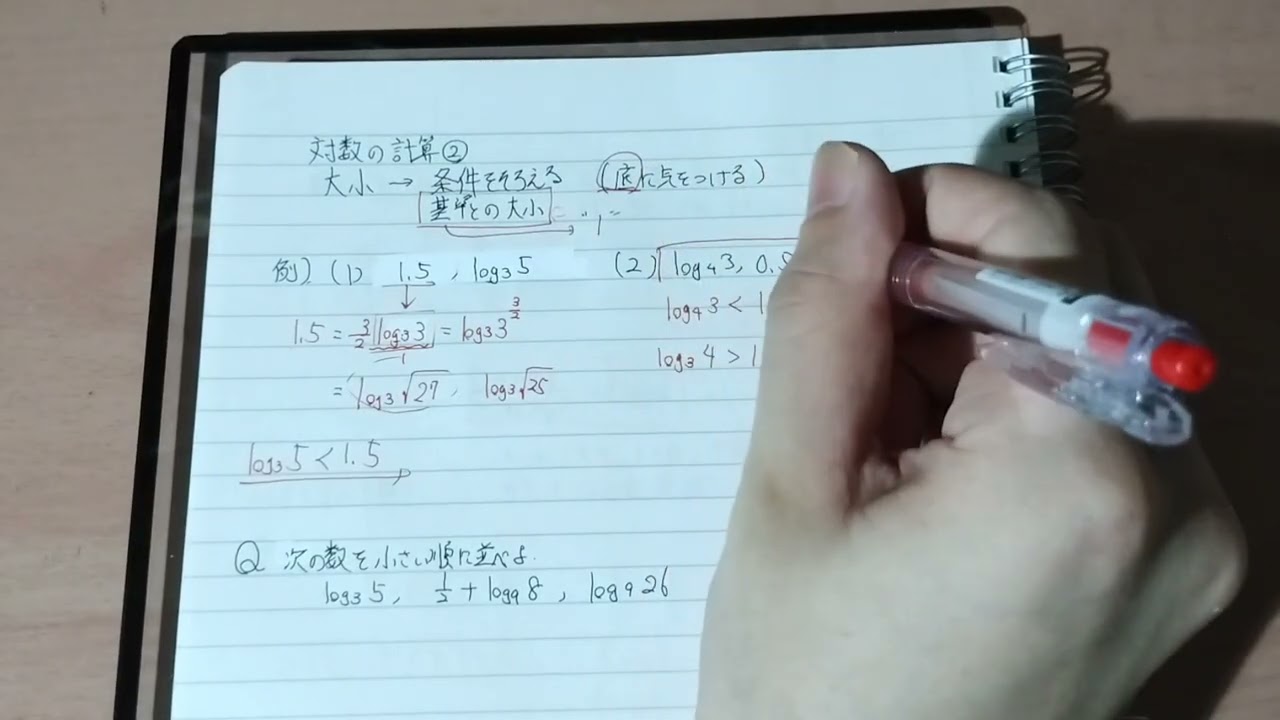 対数の計算②
大小 → 条件をそろえる (底に点をつける)
基準との大小 "1"
例) (1) 1.5 , log₃5
1.5 = 3/2 log₃3 = log₃3^(3/2)
1
= log₃√27 , log₃√25
log₃5 < 1.5
(2) log₄3, 0.
log₄3 < 1
log₃4 > 1
Q 次の数を小さい順に並べよ.
log₃5, 1/2 + log₉8 , log₉26